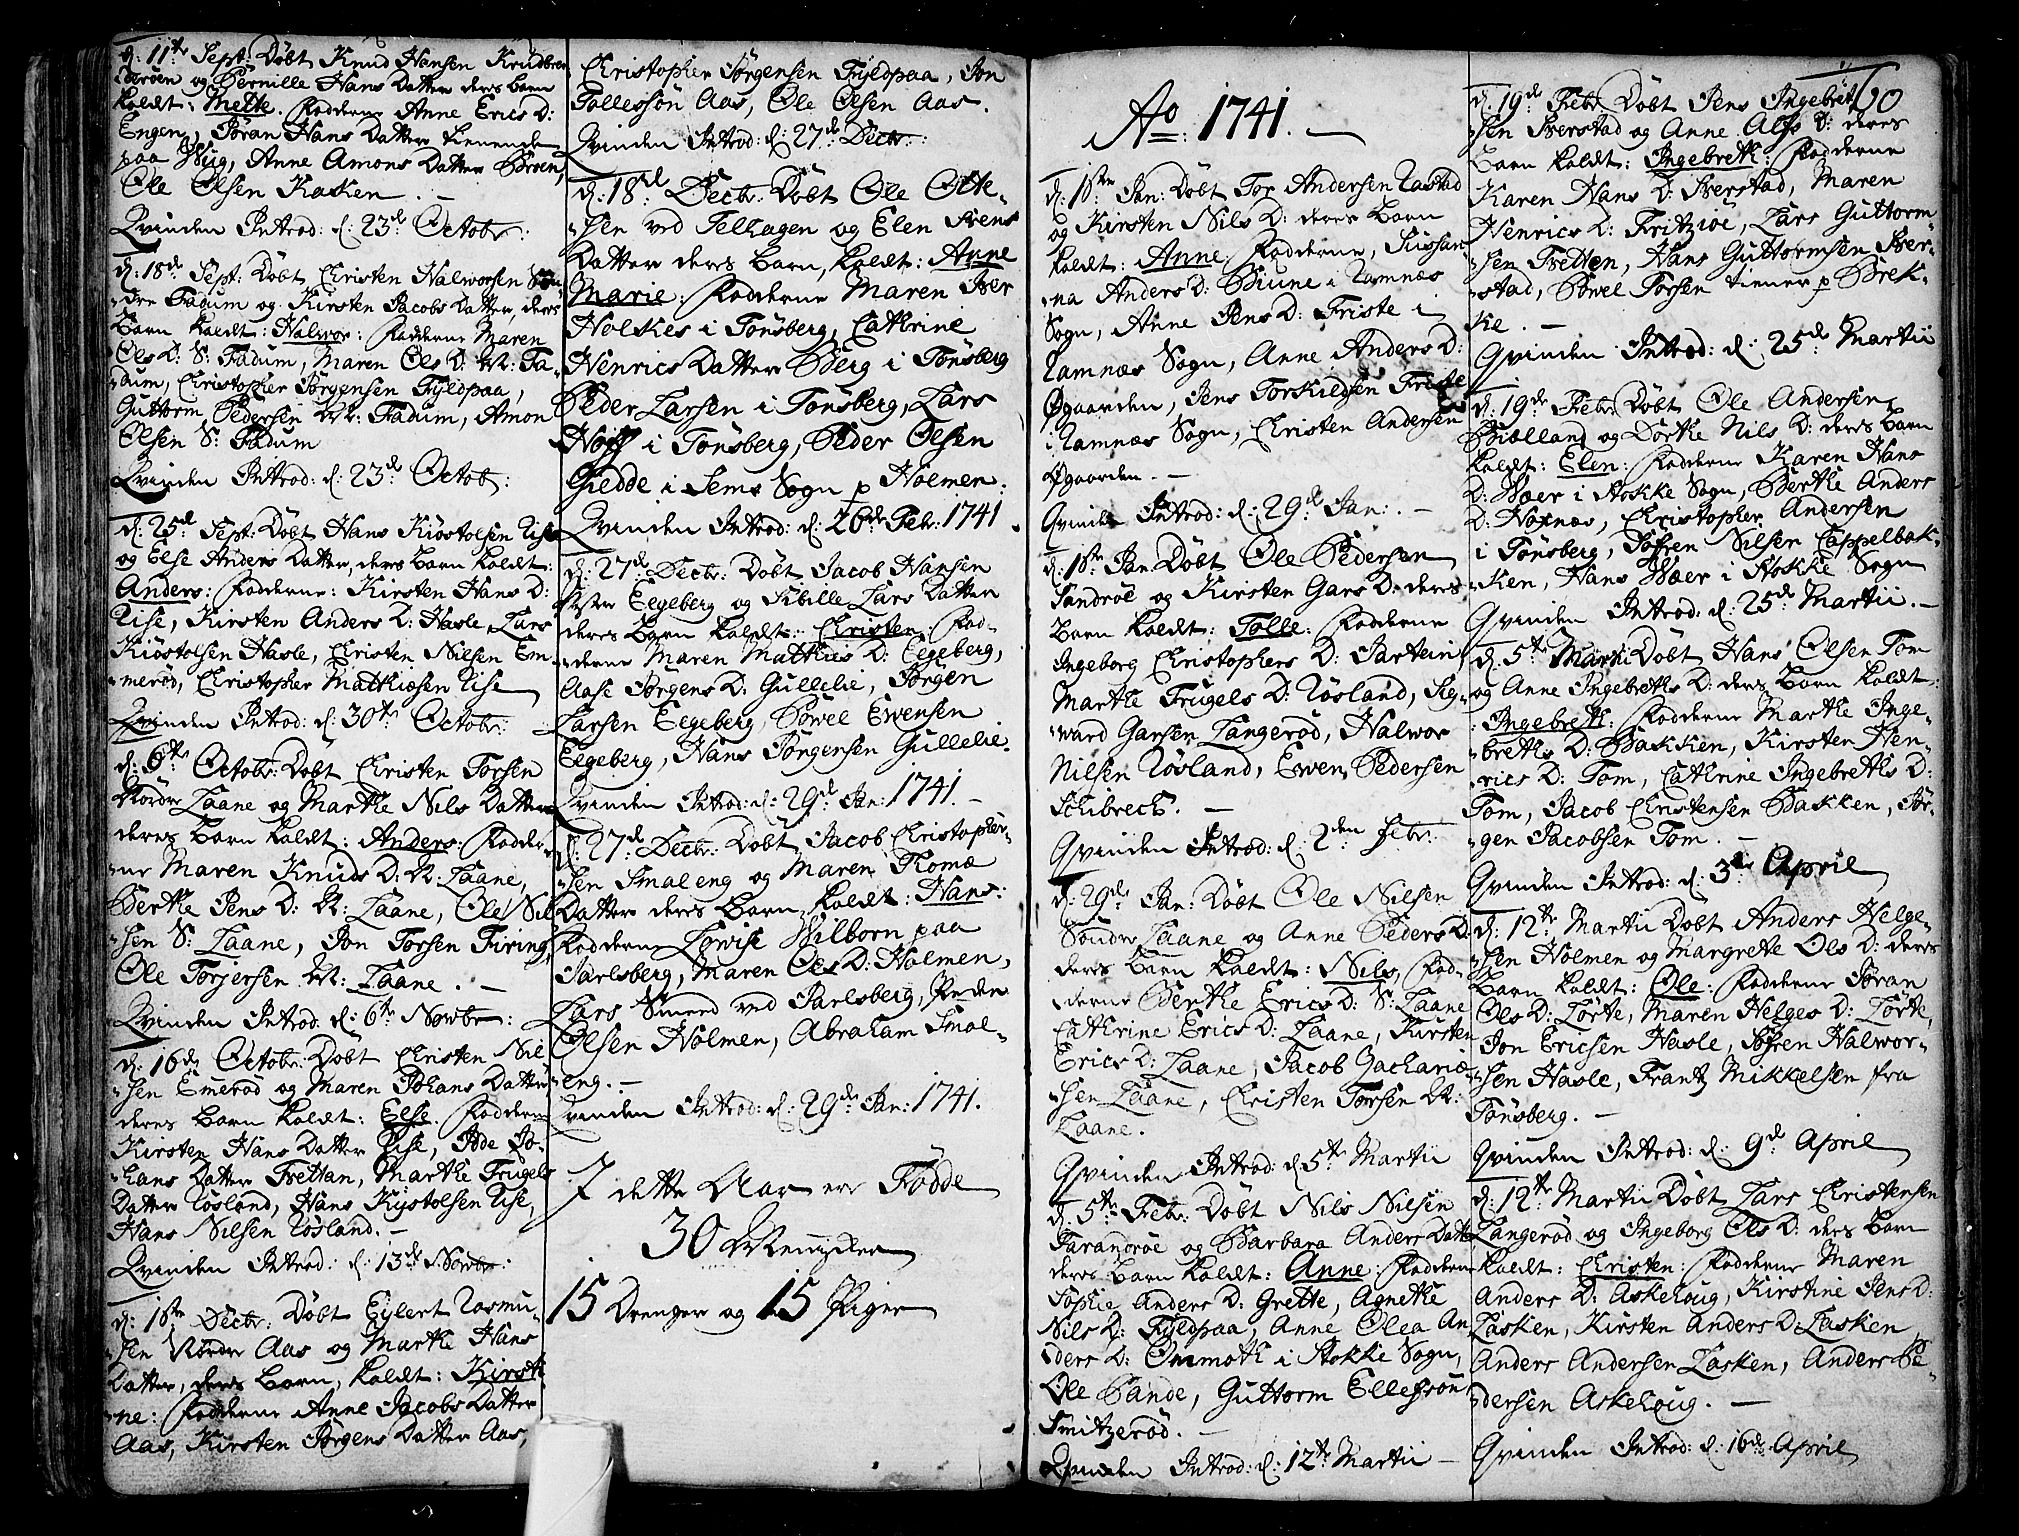 d: 11te Sept: Döbt Knud Hansen Knudbren
Böröen og Pernille Hans Datter deres Barn
kaldt: Mette. Fadderne Anne Erics D:
Engen, Jöran Hans Datter tienende
paa Wiig, Anne Amons Datter Böröen,
Ole Olsen Kasken. -
Qvinden Introd: d: 23de Octobr:
d: 18de Sept: Döbt Christen Halworsen Sön-
-dre Fadum og Kirsten Jacobs Datter, deres
Barn kaldt: Halwor: Fadderne Maren
Ols D: S: Fadum, Maren Ols D: N: Fa-
-dum, Christopher Jörgensen Fyldpaa,
Guttorm Pedersen N: Fadum, Amon
Olsen S: Fadum
Qvinden Introd: d: 23de Octob:
d: 25de Sept: Döbt Hans Kiöstolsen Rise
og Else Anders Datter, deres Barn kaldt:
Anders: Fadderne: Kirsten Hans D:
Rise, Kirsten Anders D: Hasle, Lars
Kiöstolsen Hasle, Christen Nilsen Em-
-meröd, Christopher Mathiesen Rise
Qvinden Introd: d: 30te Octobr:
d: 6te Octobr: Döbt Christen Torsen
Nordre Laane og Marthe Nils Datter
deres Barn kaldt: Anders: Fadder-
-ne Maren Knuds D: N: Laane,
Berthe Jens D: N: Laane, Ole Nil
-sen S: Laane, Jon Torsen Firing,
Ole Torjersen N: Laane. -
Qvinden Introd: d: 6te Novbr:
d: 16de Octobr: Döbt Christen Nil
-sen Emeröd og Maren Johans Datter
deres Barn kaldt: Else. Fadderne
Kirsten Hans Datter Rise, Jde Jo-
-hans Datter Frettan, Marthe Frugels
Datter Rösland, Hans Kystolsen Rise,
Hans Nilsen Rösland. -
Qvinden Introd: d: 13de Novbr:
d: 1ste Decbr: Döbt Eylert Rasmu-
-sen Nordre Aas og Marthe Hans
Datter, deres Barn, kaldt: Kirsti
-ne: Fadderne Anne Jacobs Datter
Aas, Kirsten Jörgens Datter Aas,
Christopher Jörgensen Fyldpaa, Jon
Tollessön Aas, Ole Olsen Aas.
Qvinden Introd: d: 27de Decbr:
d: 18de Decbr: Döbt Ole Otte-
-sen ved Telhagen og Elen Svens
Datter deres Barn, kaldt: Anne
Marie: Fadderne Maren Iver
Holskes i Tönsberg, Cathrine
Henrics Datter Berg i Tönsberg
Peder Larsen i Tönsberg, Lars
Hoff i Tönsberg, Peder Olsen
Giedde i Sems Sogn p Holmen:
Qvinden Introd: d: 26de Febr: 1741.
d: 27de Decbr: Döbt Jacob Hansen
Vestre Eegeberg og Sibille Lars Datter
deres Barn kaldt: Christen: Fad-
-derne Maren Mathies D: Eegeberg,
Aase Jörgens D: Gullelie, Jörgen
Larsen Eegeberg, Powel Ewensen
Eegeberg, Hans Jörgensen Gullelie.
Qvinden Introd: d: 29de Jan: 1741. -
d: 27de Decbr: Döbt Jacob Christopher-
-sen Smaleng og Maren Thomæ
Datter deres Barn kaldt: Hans:
Fadderne Lowise Wilborn paa
Jarlsberg, Maren Ols D: Holmen,
Lars Smed ved Jarlsberg, Peder
Olsen Holmen, Abraham Smal-
-eng. -
Qvinden Introd: d: 29de Jan: 1741.
I dette Aar ere Födde
30 Mennisker
15 Drenger og 15 Piger
60
Ao: 1741. -
d: 1ste Jan: Döbt Tor Andersen Rastad
og Kirsten Nils D: deres Barn
kaldt: Anne. Fadderne, Sussan-
-na Anders D: Biune i Ramnæs
Sogn, Anne Jens D: Friste i
Ramnæs Sogn, Anne Anders D:
Ögaarden, Jens Torkildsen Friste
i Ramnæs Sogn, Christen Andersen
Ögaarden. -
Qvinden Introd: d: 29de Jan: -
d: 1ste Jan Döbt Ole Pedersen
Sandröe og Kirsten Gars D: deres
Barn kaldt: Tolle: Fadderne
Ingeborg Christophers D: Jartein,
Marthe Frugels D: Rösland, Sig-
-ward Garsen Langeröd, Halwor
Nilsen Rösland, Ewen Pedersen
Schibrech. -
Qvinden Introd: d: 2den Febr:
d: 29de Jan: Döbt Ole Nilsen
Söndre Laane og Anne Peders D:
deres Barn kaldt: Nils, Fad-
-derne Berthe Erics D: S: Laane
Cathrine Erics D: Laane, Kirsten
Erics D: Laane, Jacob Zachariæ-
-sen Laane, Christen Torsen N:
Laane.
Qvinden Introd: d 5te Martii
d: 5te Febr: Döbt Nils Nilsen
Farandröe og Barbara Anders Datter
deres Barn kaldt: Anne: Fadderne
Sophie Anders D: Grette, Agnethe
Nils D: Fyldpaa, Anne Olea An
-ders D: Ommoth i Stokke Sogn,
Ole Sande, Guttorm Ellefsön
Smitzeröd. -
Qvinden Introd: d: 12te Martii -
d: 19de Febr: Döbt Jens Ingebret
-sen Sverstad og Anne Alfs D: deres
Barn kaldt: Ingebreth: Fadderne
Karen Hans D: Sverstad, Maren
Henrics D: Fritzöe, Lars Guttorm-
-sen Fretten, Hans Guttormsen Sver-
-stad, Powel Torsen tiener p Brek-
-ke. -
Qvinden Introd: d: 25de Martii
d: 19de Febr: Döbt Ole Andersen
Biælland og Dorthe Nils D: deres Barn
kaldt: Elen: Fadderne Karen Hans
D: Wær i Stokke Sogn, Berthe Anders
D: Hoxnæs, Christopher Andersen
i Tönsberg, Söfren Nilsen Cappelbak-
-ken, Hans Wær i Stokke Sogn
Qvinden Introd: d: 25de Martii. -
d: 5te Marti: Döbt Hans Olsen Tom
og Anne Ingebreths D: deres Barn kaldt:
: Ingebreth: Fadderne Marthe Inge-
-breths D: Bakken, Kirsten Hen-
-rics D: Tom, Cathrine Ingebreths D:
Tom, Jacob Christensen Bakken, Jör-
-gen Jacobsen Tom. -
Qvinden Introd: d: 3die April
d: 12te Martii Döbt Anders Helge-
-sen Holmen og Margrete Ols D: deres
Barn kaldt: Ole: Fadderne Jöran
Ols D: Lörte, Maren Helges D: Lörte,
Jon Ericsen Hasle, Söfren Halwor-
-sen Hasle, Frantz Mikkelsen fra
Tönsberg. -
Qvinden Introd: d: 9de April
d: 12te Martii Döbt Lars Christensen
Langeröd og Ingeborg Ols D: deres Barn
kaldt: Christen: Fadderne Maren
Anders D: Askehoug, Kirstine Jens D:
Lasken, Kirsten Anders D: Lasken
Anders Andersen Lasken, Anders Pe-
-dersen Askehoug. -
Qvinden Introd: d: 16de April